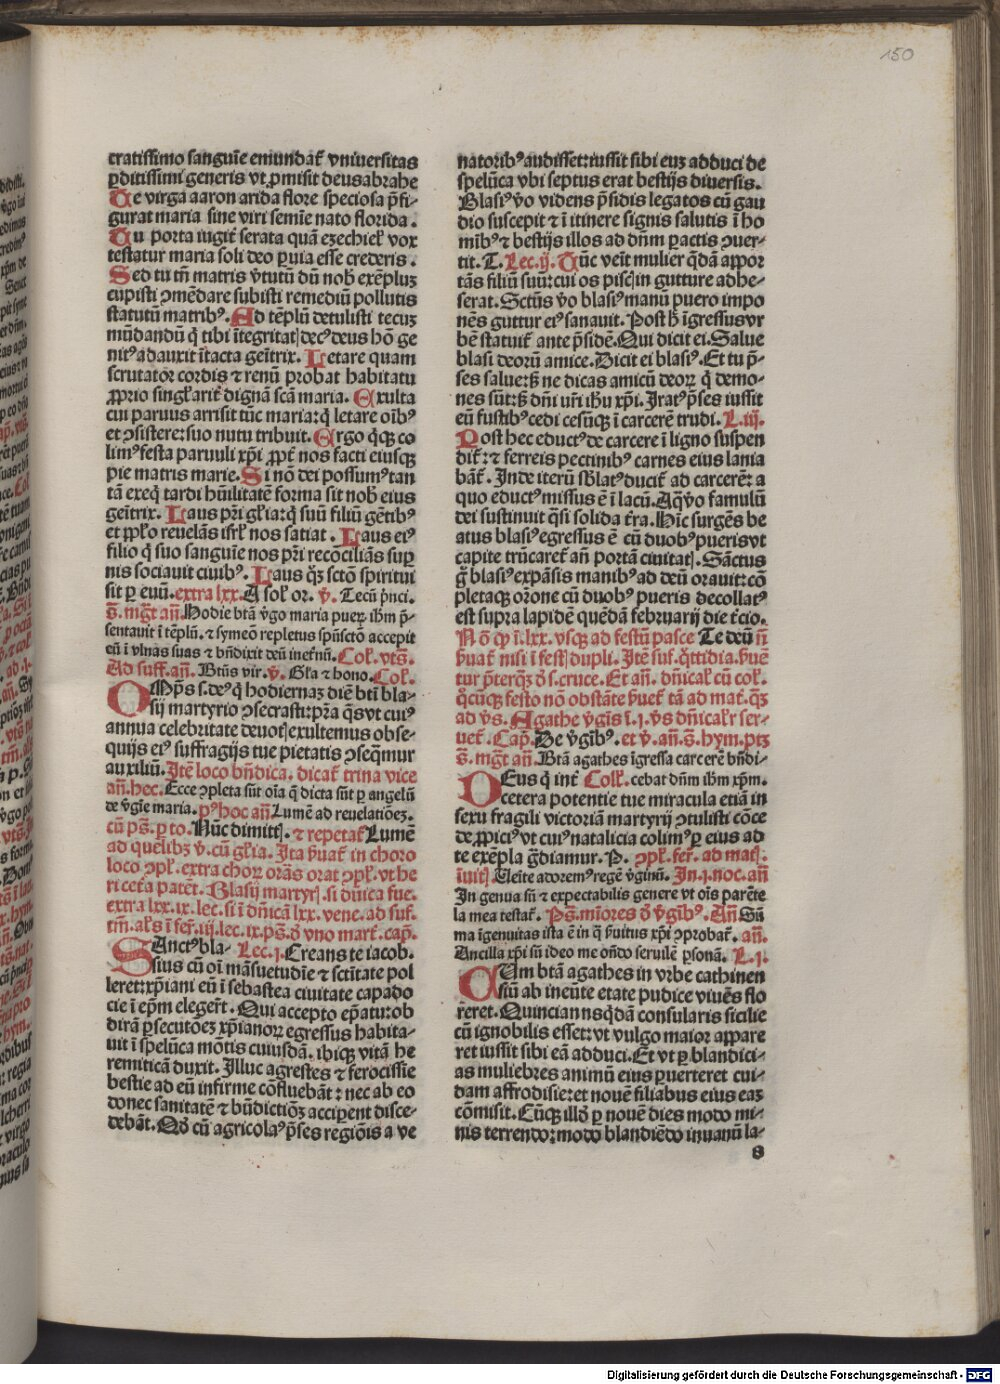 150
cratissimo sanguīe emundat᷑ vniuersitas
ꝑditissimi generis vt ꝓmisit deus abrahe
Te virga aaron arida flore speciosa p̄fi-
gurat maria sine viri semīe nato florida.
Tu porta iugit᷑ serata quā ezechiel' vox
testatur maria soli deo ꝑuia esse crederis.
Sed tu tn̄ matris v̓tutū dū nob̓ exēpluꝫ
cupisti ꝯmēdare subisti remediū pollutis
statutū matribꝰ. Ad tēplū detulisti tecuꝫ
mūdandū q̄ tibi ītegritatꝭ decꝰ deus hō ge
nitꝰ adauxit ītacta geītrix. Letare quam
scrutator cordis ⁊ renū probat habitatu
ꝓprio singl'arit̓ dignā scā̄ maria. Exulta
cui paruus arrisit tūc maria: q̄ letare oībꝰ
et ꝯsistere: suo nutu tribuit. Ergo q̄qꝫ co
limꝰ festa paruuli xp̄i ꝓpt̓ nos facti eiusqꝫ
pie matris marie. Si nō dei possumꝰ tan
tā exeq̄ tardi hūilitatē forma sit nob̓ eius
geītrix. Laus pr̄i gl'ia: q̄ suū filiū gētibꝰ
et ppl'o reuelās isrl' nos satiat. Laus eiꝰ
filio q̄ suo sanguīe nos pr̄i recōciliās suꝑ
nis sociauit ciuibꝰ. Laus q̄ꝫ sctō spiritui
sit ꝑ euū. extra lxx. A sol' or. v̓. Tecū p̓nci.
S̄. mgt̄ an̄. Hodie btā v̓go maria pueꝝ ihm̄ p̄-
sentauit ī tēplū. ⁊ symeō repletus spūsctō accepit
eū ī vlnas suas ⁊ bn̄dixit deū inet̓nū. Col'. vts̄.
Ad suff. an̄. Btūs vir. v̓. Gl'a ⁊ hono. Col'.
OMp̄s s. deꝰ q̄ hodiernaꝫ diē bt̄i bla-
sij martyrio ꝯsecrasti: pr̄a q̄s vt cuiꝰ
annua celebritate deuotꝭ exultemus obse-
quijs eiꝰ suffragijs tue pietatis ꝯseq̄mur
auxiliū. Itē loco bn̄dica. dicat᷑ trina vice
an̄. hec. Ecce ꝯpleta sūt oīa q̄ dicta sūt ꝑ angelū
de v̓gīe maria. pꝰ hoc an̄ Lumē ad reuelatiōeꝫ.
cū ps̄. ꝑ to. Nūc dimittꝭ. ⁊ repetat᷑ Lumē
ad quelibꝫ v̓. cū gl'ia. Ita fiuat᷑ in choro
loco ꝯpl'. extra choꝝ orās orat ꝯpl'. vt he
ri cet̓a patēt. Blasij martyrꝭ. si diuica fue.
extra lxx. ix. lec. si ī dn̄icā lxx. vene. ad suf.
tm̄. al's ī fer̓. iij. lec. ix. ps̄. d̓ vno mart̓. cap̄.
SAnctꝰ bla- Lec. j. Creans te iacob.
sius cū oī māsuetudīe ⁊ sctītate pol
leret: xp̄iani eū ī sebastea ciuitate capado
cie ī ep̄m elegert̄. Qui accepto ep̄atu: ob
dirā ꝑsecutōeꝫ xp̄ianoꝝ egressus habita-
uit ī spelūca mōtis cuiusdā. ibiqꝫ vitā he
remiticā duxit. Illuc agrestes ⁊ ferocissīe
bestie ad eū infirme cōfluebāt: nec ab eo
donec sanitatē ⁊ bn̄dictiōꝫ acciꝑent disce-
debāt. Qd̓ cū agricolaꝰ p̄ses regiōis a ve
natoribꝰ audisset: iussit sibi euꝫ adduci de
spelūca vbi septus erat bestijs diuersis.
Blasiꝰ v̓o videns p̄sidis legatos cū gau
dio suscepit ⁊ ī itinere signis salutis ī ho
mībꝰ ⁊ bestijs illos ad dn̄m ꝑactis ꝯuer-
tit. T. Lec. ij. Tūc veīt mulier q̄dā appor
tās filiū suū: cui os piscꝭ in gutture adhe-
serat. Sctūs v̓o blasiꝰ manū puero impo
nēs guttur eiꝰ sanauit. Post h̓ īgressus vr
bē statuit᷑ ante p̄sidē. Qui dicit ei. Salue
blasi deorū amice. Dicit ei blasiꝰ. Et tu p̄-
ses salue: sꝫ ne dicas amicū deoꝝ q̄ demo-
nes sūt: sꝫ dn̄i vr̄i ihū xp̄i. Iratꝰ p̄ses iussit
eū fustibꝰ cedi cesūqꝫ ī carcerē trudi. L. iij.
Post hec eductꝰ de carcere ī ligno suspen
dit᷑: ⁊ ferreis pectinibꝰ carnes eius lania
bāt᷑. Inde iterū sblatꝰ ducit᷑ ad carcerē: a
quo eductꝰ missus ē ī lacū. Aq̄ v̓o famulū
dei sustinuit q̄si solida t̓ra. Hīc surgēs be
atus blasiꝰ egressus ē cū duobꝰ pueris vt
capite trūcaret᷑ an̄ portā ciuitatꝭ. Sāctus
g̓ blasiꝰ expāsis manibꝰ ad deū orauit: cō
pletaqꝫ or̄one cū duobꝰ pueris decollatꝰ
est supra lapidē quēdā februarij die t̓cio.
Nō qꝫ ī. lxx. vsqꝫ ad festū pasce Te deū n̄
fiuat᷑ nisi ī festꝭ dupli. Itē suf. q̄ttidia. fiuē
tur p̄terqꝫ d̓ s. cruce. Et an̄. dn̄ical' cū col'.
q̄cūqꝫ festo nō obstāte fiuet᷑ tā ad mat̓. q̄ꝫ
ad v̓s. Agathe v̓gīs ī. j. v̓s dn̄ical'r ser-
uet᷑. Cap̄. De v̓gībꝰ. et v̓. an̄. s̄. hym. ptꝫ
S̄. mgt̄ an̄. Btā agathes īgressa carcerē bn̄di-
DEus q̄ int̓ Coll'. cebat dn̄m ihm̄ xp̄m.
cetera potentie tue miracula etiā in
sexu fragili victoriā martyrij ꝯtulisti cōce
de ꝓpiciꝰ vt cuiꝰ natalicia colimꝰ ꝑ eius ad
te exēpla g̓diamur. P. ꝯpl'. fer̓. ad matꝭ.
īuitꝭ Uenite adoremꝰ regē v̓ginū. In. j. noc. an̄
In genua sū ⁊ expectabilis genere vt oīs parēte
la mea testat᷑. Ps̄. mīores d̓ v̓gībꝰ. An̄ Sū
ma īgenuitas ista ē in q̄ fiuitus xp̄i ꝯprobat᷑. an̄.
Ancilla xp̄i sū ideo me on̄do seruilē ꝑsonā. L. j.
CUm btā agathes in vrbe cathinen
siū ab ineūte etate pudice viuēs flo
reret. Quincianꝰ q̄dā consularis sicilie
cū ignobilis esset: vt vulgo maior appare
ret iussit sibi eā adduci. Et vt ꝑ blandici-
as muliebres animū eius ꝑuerteret cui-
dam affrodisie: et nouē filiabus eius eaꝫ
cōmisit. Cūqꝫ ille ꝑ nouē dies modo mi-
nis terrendo: modo blandiēdo in vanū la-
8
Digitalisierung gefördert durch die Deutsche Forschungsgemeinschaft - DFG